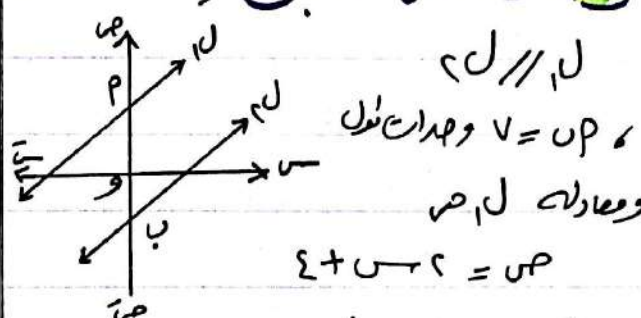 ل١ // ل٢
، م ب = ٧ وحدات طول
ومعادلة ل١ هى
ص = ٢ س + ٤
ص
ل١
م
ل٢
سَ
س
و
ب
صَ